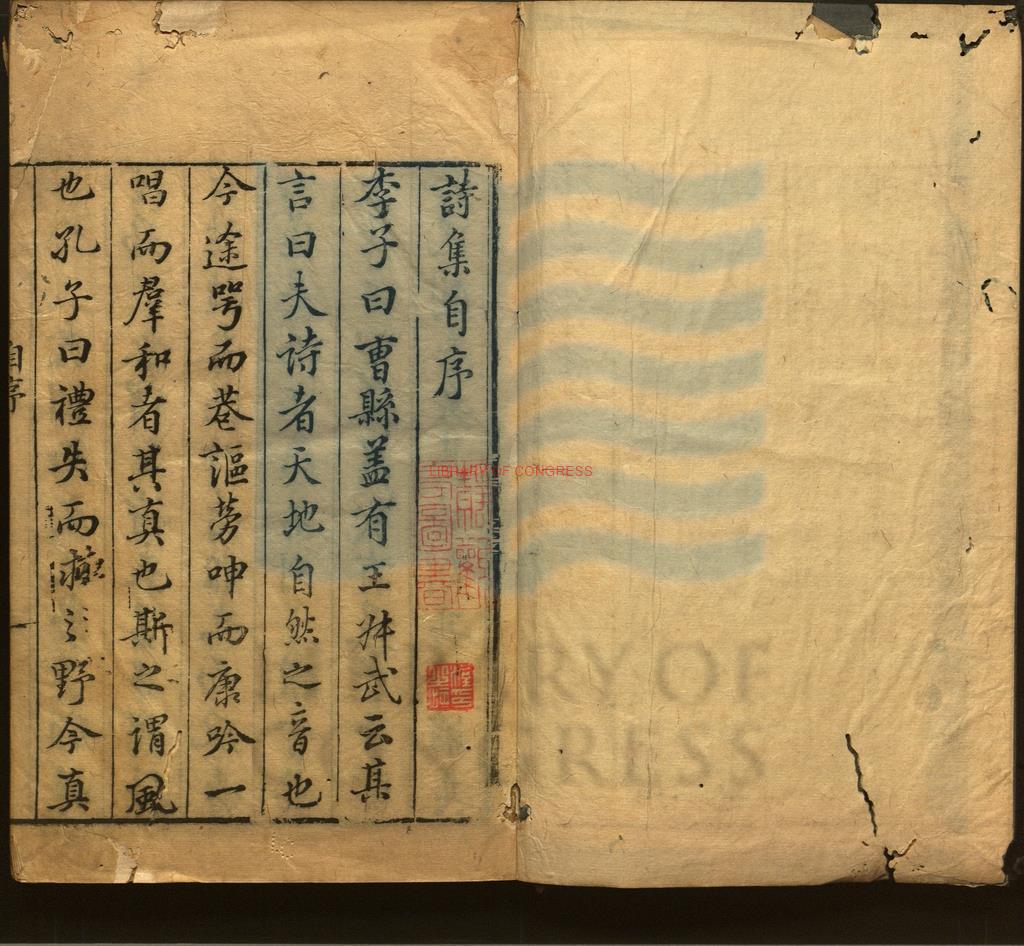 詩集自序
李子曰曹縣盖有王叔武云其
言曰夫詩者天地自然之音也
今途咢而巷謳勞呻而康吟一
唱而羣和者其真也斯之謂風
也孔子曰禮失而求之野今真
自序
LIBRARY OF CONGRESS